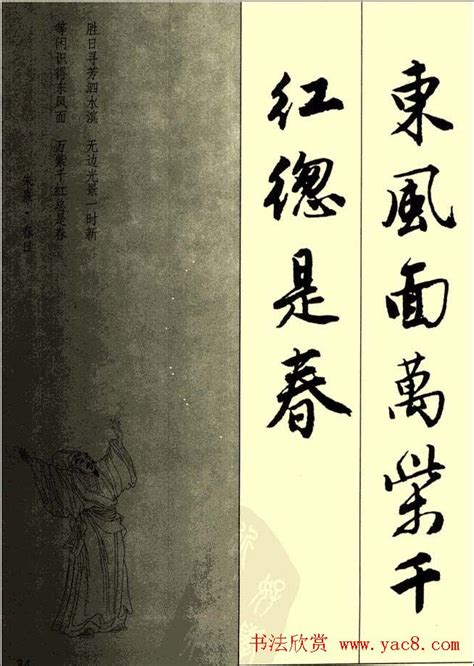 東風面萬紫千
紅總是春
胜日寻芳泗水滨 无边光景一时新
等闲识得东风面 万紫千红总是春
朱熹·春日
34
书法欣赏 www.yac8.com